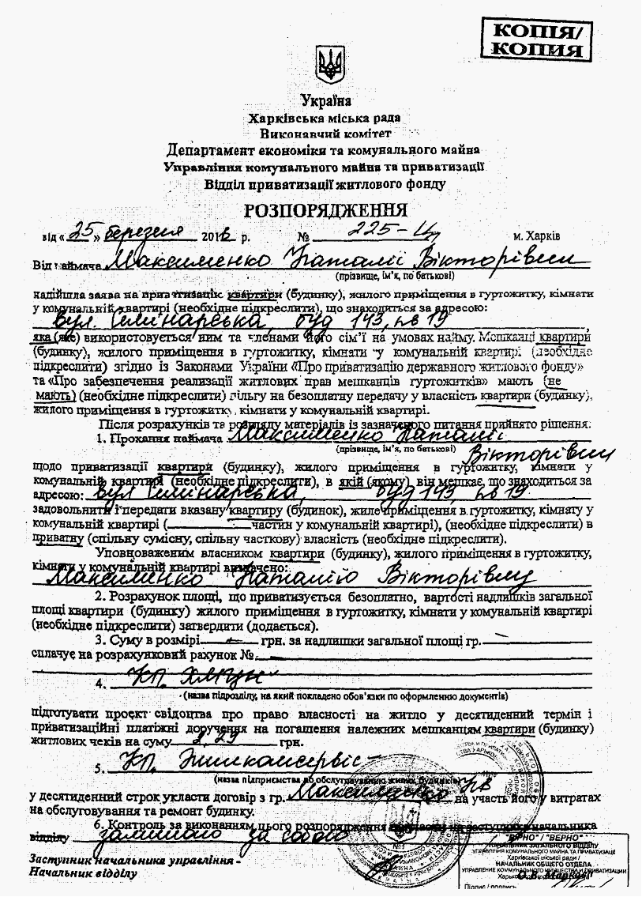 КОПІЯ/
КОПИЯ
Україна
Харківська міська рада
Виконавчий комітет
Департамент економіки та комунального майна
Управління комунального майна та приватизації
Відділ приватизації житлового фонду
РОЗПОРЯДЖЕННЯ
від « 25 » березня 2016 р. № 225- м. Харків
Від наймача Максименко Наталії Вікторівни
(прізвище, ім’я, по батькові)
надійшла заява на приватизацію квартири (будинку), жилого приміщення в гуртожитку, кімнати
у комунальній квартирі (необхідне підкреслити), що знаходиться за адресою:
вул. Семінарська, буд 143, кв 19
яка (яке) використовується ним та членами його сім’ї на умовах найму. Мешканці квартири
(будинку), жилого приміщення в гуртожитку, кімнати у комунальній квартирі (необхідне
підкреслити) згідно із Законами України «Про приватизацію державного житлового фонду»
та «Про забезпечення реалізації житлових прав мешканців гуртожитків» мають (не
мають) (необхідне підкреслити) пільгу на безоплатну передачу у власність квартири (будинку),
жилого приміщення в гуртожитку, кімнати у комунальній квартирі.
Після розрахунків та розгляду матеріалів із зазначеного питання прийнято рішення:
1. Прохання наймача Максименко Наталії
(прізвище, ім’я, по батькові) Вікторівни
щодо приватизації квартири (будинку), жилого приміщення в гуртожитку, кімнати у
комунальній квартирі (необхідне підкреслити), в якій (якому) він мешкає, що знаходиться за
адресою: вул Семінарська, буд 143, кв 19
задовольнити і передати вказану квартиру (будинок), жиле приміщення в гуртожитку, кімнату у
комунальній квартирі ( частин у комунальній квартирі), (необхідне підкреслити) в
приватну (спільну сумісну, спільну часткову) власність (необхідне підкреслити).
Уповноваженим власником квартири (будинку), жилого приміщення в гуртожитку,
кімнати у комунальній квартирі визначено:
Максименко Наталію Вікторівну
2. Розрахунок площі, що приватизується безоплатно, вартості надлишків загальної
площі квартири (будинку) жилого приміщення в гуртожитку, кімнати у комунальній квартирі
(необхідне підкреслити) затвердити (додається).
3. Суму в розмірі — грн. за надлишки загальної площі гр.
сплачує на розрахунковий рахунок №
4. КП
(назва підрозділу, на який покладено обов’язки по оформленню документів)
підготувати проект свідоцтва про право власності на житло у десятиденний термін і
приватизаційні платіжні доручення на погашення належних мешканцям квартири (будинку)
житлових чеків на суму ,29 грн.
5. КП Жилкомсервіс
(назва підприємства по обслуговуванню жилих будинків)
у десятиденний строк укласти договір з гр. Максименко НВ на участь його у витратах
на обслуговування та ремонт будинку.
6. Контроль за виконанням цього розпорядження заступника начальника
відділу залишаю за собою
Заступник начальника управління -
Начальник відділу
"ВІРНО" / "ВЕРНО"
НАЧАЛЬНИК ЗАГАЛЬНОГО ВІДДІЛУ
УПРАВЛІННЯ КОМУНАЛЬНОГО МАЙНА ТА ПРИВАТИЗАЦІЇ
Харківської міської ради /
НАЧАЛЬНИК ОБЩЕГО ОТДЕЛА
УПРАВЛЕНИЕ КОММУНАЛЬНОГО ИМУЩЕСТВА И ПРИВАТИЗАЦИИ
О.В.